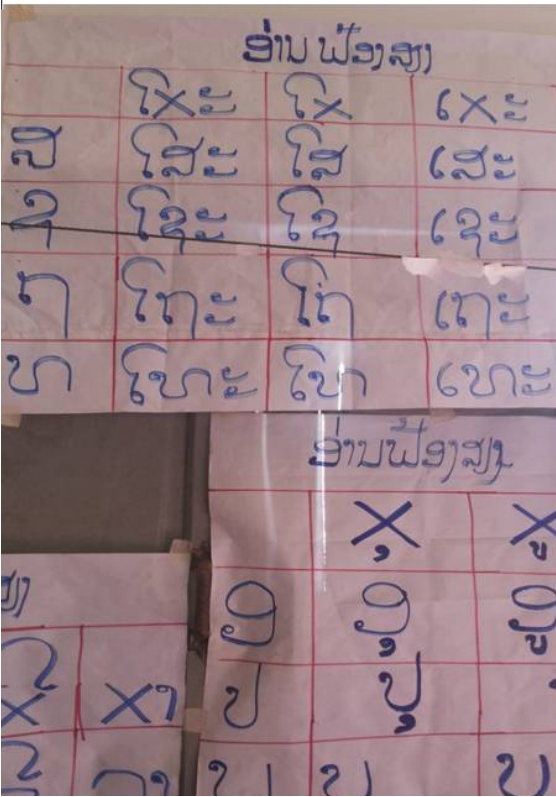 ອ່ານ ຟັອງສຽງ
ໂxະ ໂx ເxະ
ສ ໂສະ ໂສ ເສະ
ຊ ໂຊະ ໂຊ ເຊະ
ຖ ໂຖະ ໂຖ ເຖະ
ຫ ໂຫະ ໂຫ ເຫະ
ອ່ານຟັອງສຽງ
xຸ xູ
ຢ ຢຸ ຢູ
ປ ປຸ
xາ